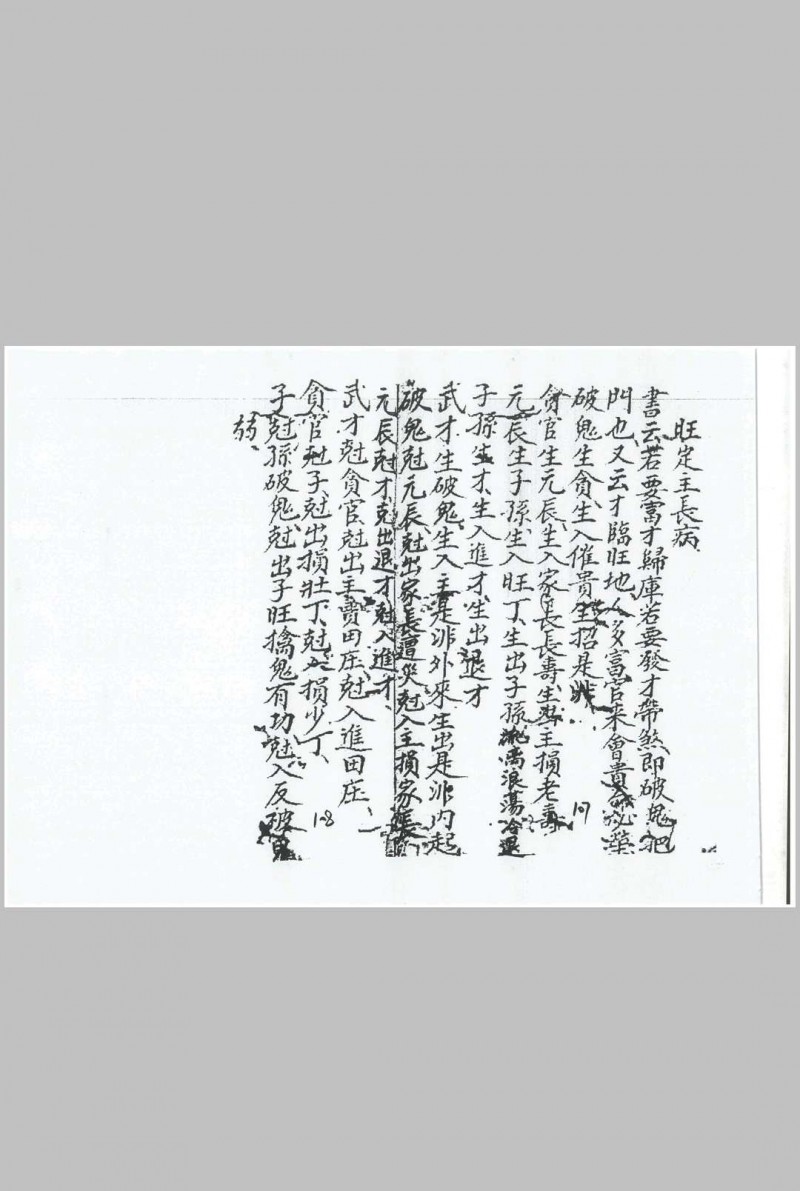 旺定主長病
書云若要富才歸庫若要發才帶煞即破鬼把
門也又云才臨旺地人多富官來會貴
破鬼生貪生入催貴生招是非
貪官生元辰生入家長長壽生出主損老壽
元辰生子孫生入旺丁生出子孫離浪蕩冷退
子孫生才生入進才生出退才
武才生破鬼生入主是非外來生出是非內起
破鬼尅元辰尅出家長遭災尅入主損家長
元辰尅才尅出退才尅入進才
武才尅貪官尅出主賣田庄尅入進田庄
貪官尅子尅出損壯丁尅入損少丁
子尅孫破鬼尅出子旺擒鬼有功尅入反破鬼
弱
107
108